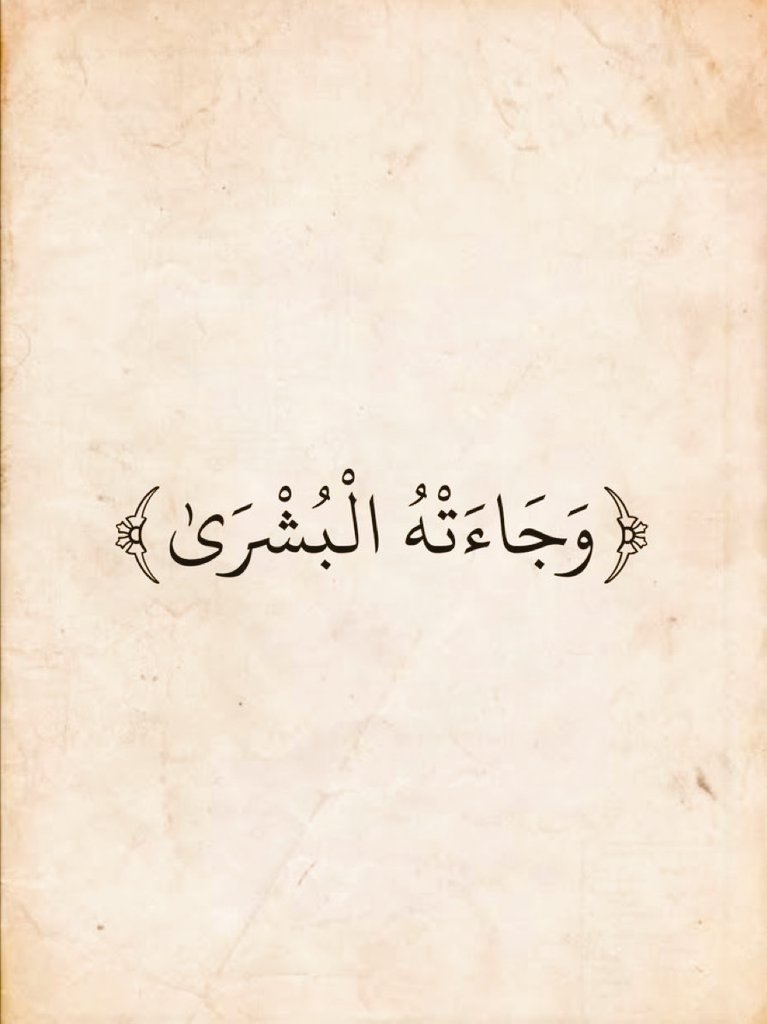 ﴿وَجَاءَتْهُ الْبُشْرَىٰ﴾